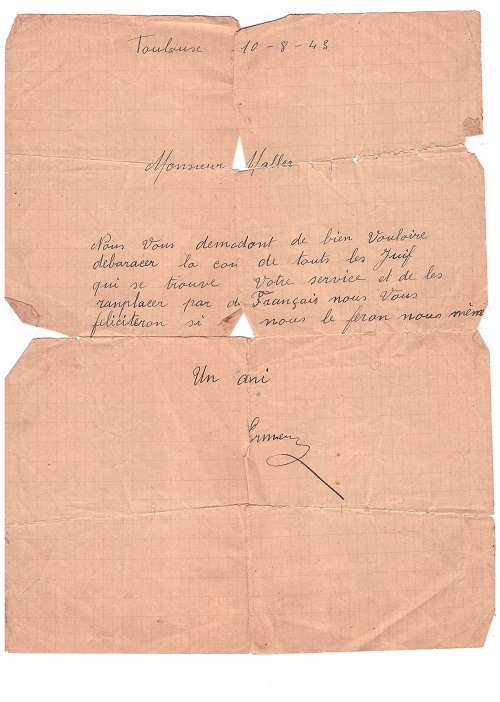 Toulouse 10-8-43
Monsieur Haller
Nous Vous demadont de bien Vouloire
débaracer la cou de touts les Juif
qui se trouve Votre service et de les
ranplacer par d Français nous Vous
féliciteron si nous le feron nous même
Un ami